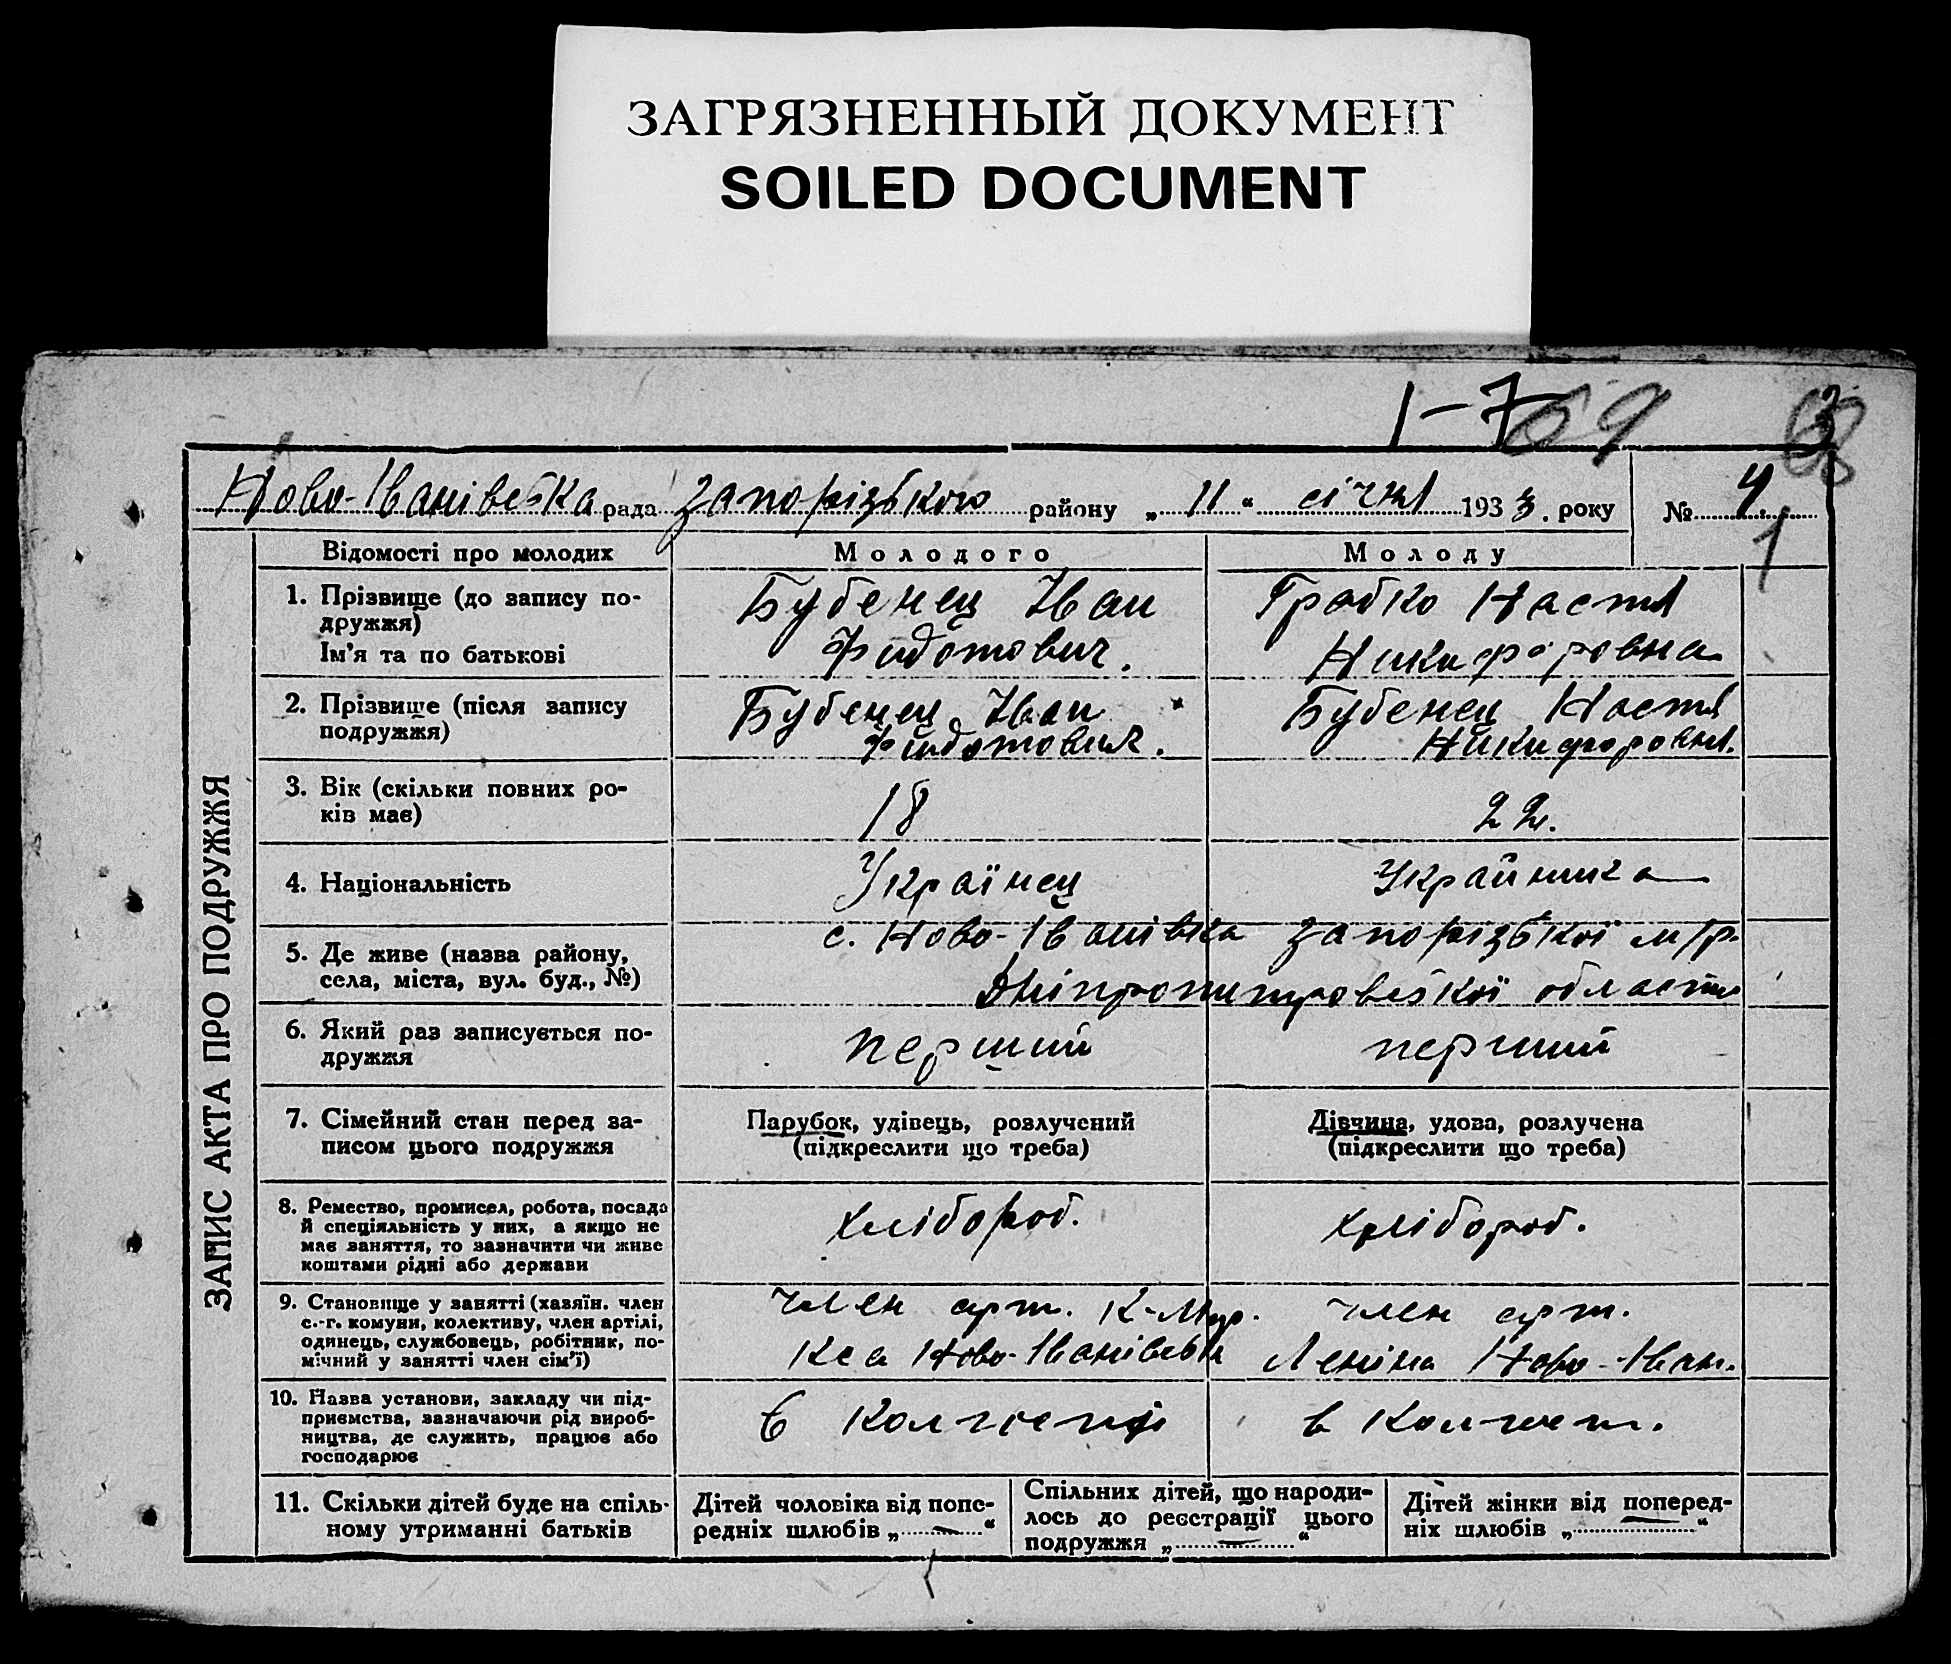 ЗАГРЯЗНЕННЫЙ ДОКУМЕНТ
SOILED DOCUMENT
1-7 69
Ново-Іванівська рада запорізького району „ 11 “ січня 1933. року № 4.
1
ЗАПИС АКТА ПРО ПОДРУЖЖЯ
Відомості про молодих Молодого Молоду
1. Прізвище (до запису по- Бубенец Іван Грабко Настя
дружжя) Фидотович. Никифоровна
Ім'я та по батькові
2. Прізвище (після запису Бубенец Іван Бубенец Настя
подружжя) Фидотович. Никифоровна.
3. Вік (скільки повних ро- 18 22.
ків має)
4. Національність Українец Украйинка
5. Де живе (назва району, с. Ново-Іванівка запорізької м/р.
села, міста, вул. буд., №) Дніпропитровської области
6. Який раз записується по- перший перший
дружжя
7. Сімейний стан перед за- Парубок, удівець, розлучений Дівчина, удова, розлучена
писом цього подружжя (підкреслити що треба) (підкреслити що треба)
8. Ремество, промисел, робота, посада хлібороб. хлібороб.
й спеціяльність у них, а якщо не
має заняття, то зазначити чи живе
коштами рідні або держави
9. Становище у занятті (хазяїн. член член арт. член арт.
с.-г. комуни, колективу, член артілі, Леніна Ново-Іван.
одинець, службовець, робітник, по-
мічний у занятті член сім'ї)
10. Назва установи, закладу чи під- в в
приємства, зазначаючи рід вироб-
ництва, де служить, працює або
господарює
11. Скільки дітей буде на спіль- Дітей чоловіка від попе- Спільних дітей, що народи- Дітей жінки від поперед-
ному утриманні батьків редніх шлюбів „ — “ лось до реєстрації цього ніх шлюбів „ — “
подружжя „ — “